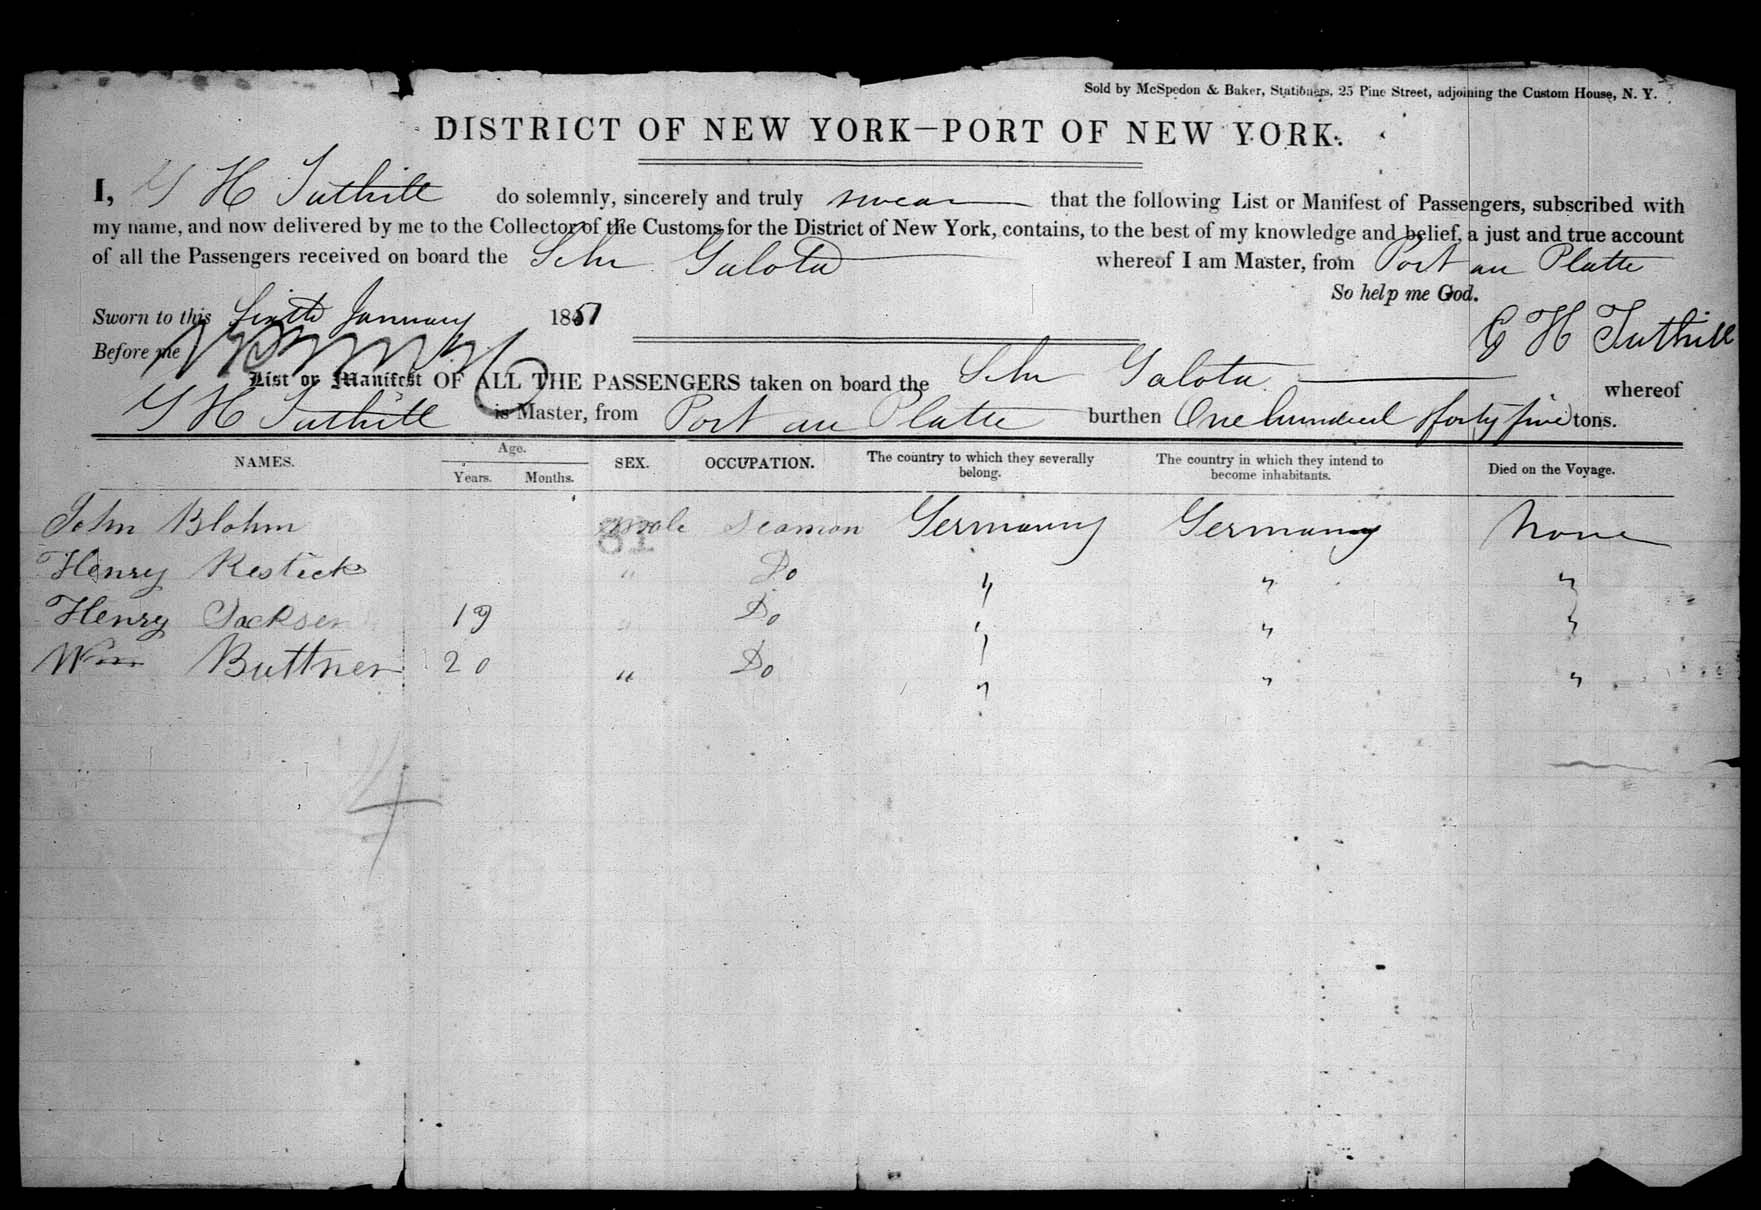 Sold by McSpedon & Baker, Stationers, 25 Pine Street, adjoining the Custom House, N. Y.
DISTRICT OF NEW YORK—PORT OF NEW YORK.
I, G H Tuthill do solemnly, sincerely and truly swear that the following List or Manifest of Passengers, subscribed with
my name, and now delivered by me to the Collector of the Customs for the District of New York, contains, to the best of my knowledge and belief, a just and true account
of all the Passengers received on board the Schr Galota whereof I am Master, from Port au Platte
So help me God.
Sworn to this Sixth January 1851
Before me
G H Tuthill
List or Manifest OF ALL THE PASSENGERS taken on board the Schr Galota whereof
G H Tuthill is Master, from Port au Platte burthen One hundred & forty five tons.
NAMES. Age. Years. Months. SEX. OCCUPATION. The country to which they severally belong. The country in which they intend to become inhabitants. Died on the Voyage.
John Blohm male Seaman Germany Germany None
81
Henry Restick " Do " " "
Henry Jackson 19 " Do " " "
Wm Buttner 20 " Do " " "
4